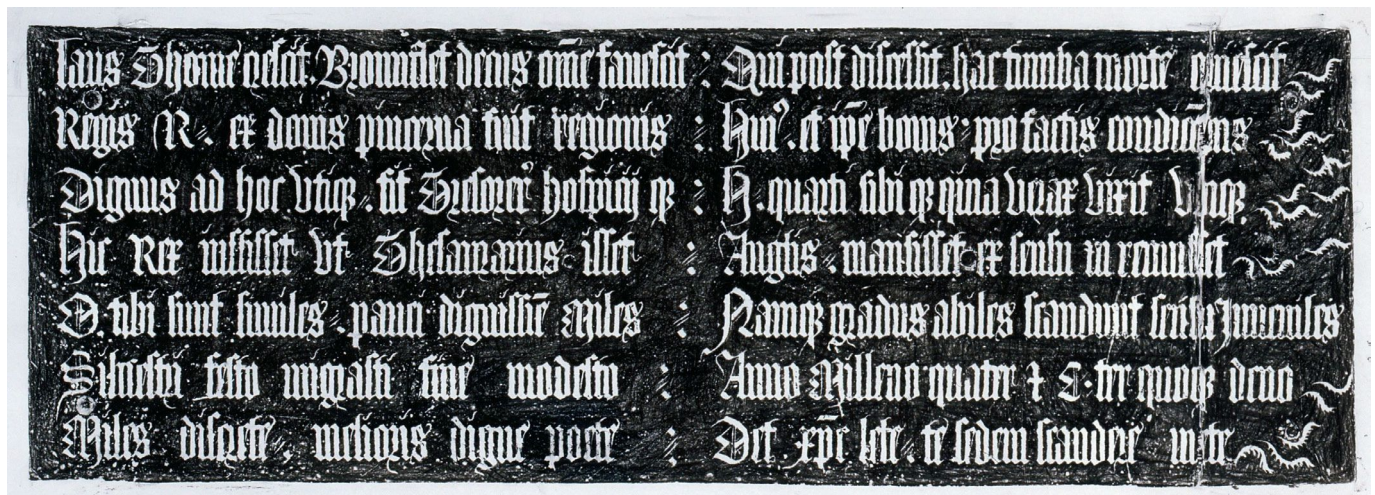 laus Thome crescit. Bromflet decus ōme fauescit : Qui post discessit. hac tumba morte quiescit
Regis R. ex donis pincerna fuit regionis : Huiꝰ. et ip̄e bonus pro factis
Dignus ad hoc vtiqꝫ. fit hospicij qꝫ : H. quarti sibi qꝫ vixit vbiqꝫ
Hic Rex iussisset vt Thesaurarius isset : Anglis. mansisset ex sensu ni renuisset
O. tibi sunt similes. pauci dignissīe Miles : Namqꝫ gradus abiles scandunt Juueniles
Siluestri festo migrasti fine modesto : Anno Milleno quater ⁊ C. ter quoqꝫ deno
Miles discrete, melioris digne poete : Det xp̄e lete. te sedem scandere mete